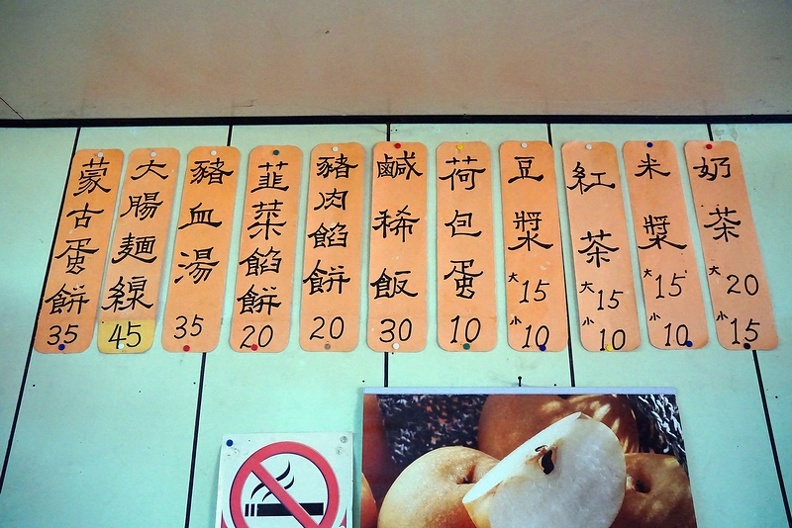 蒙古蛋餅
35
大腸麵線
45
豬血湯
35
韮菜餡餅
20
豬肉餡餅
20
鹹稀飯
30
荷包蛋
10
豆漿
大15
小10
紅茶
大15
小10
米漿
大15
小10
奶茶
大20
小15